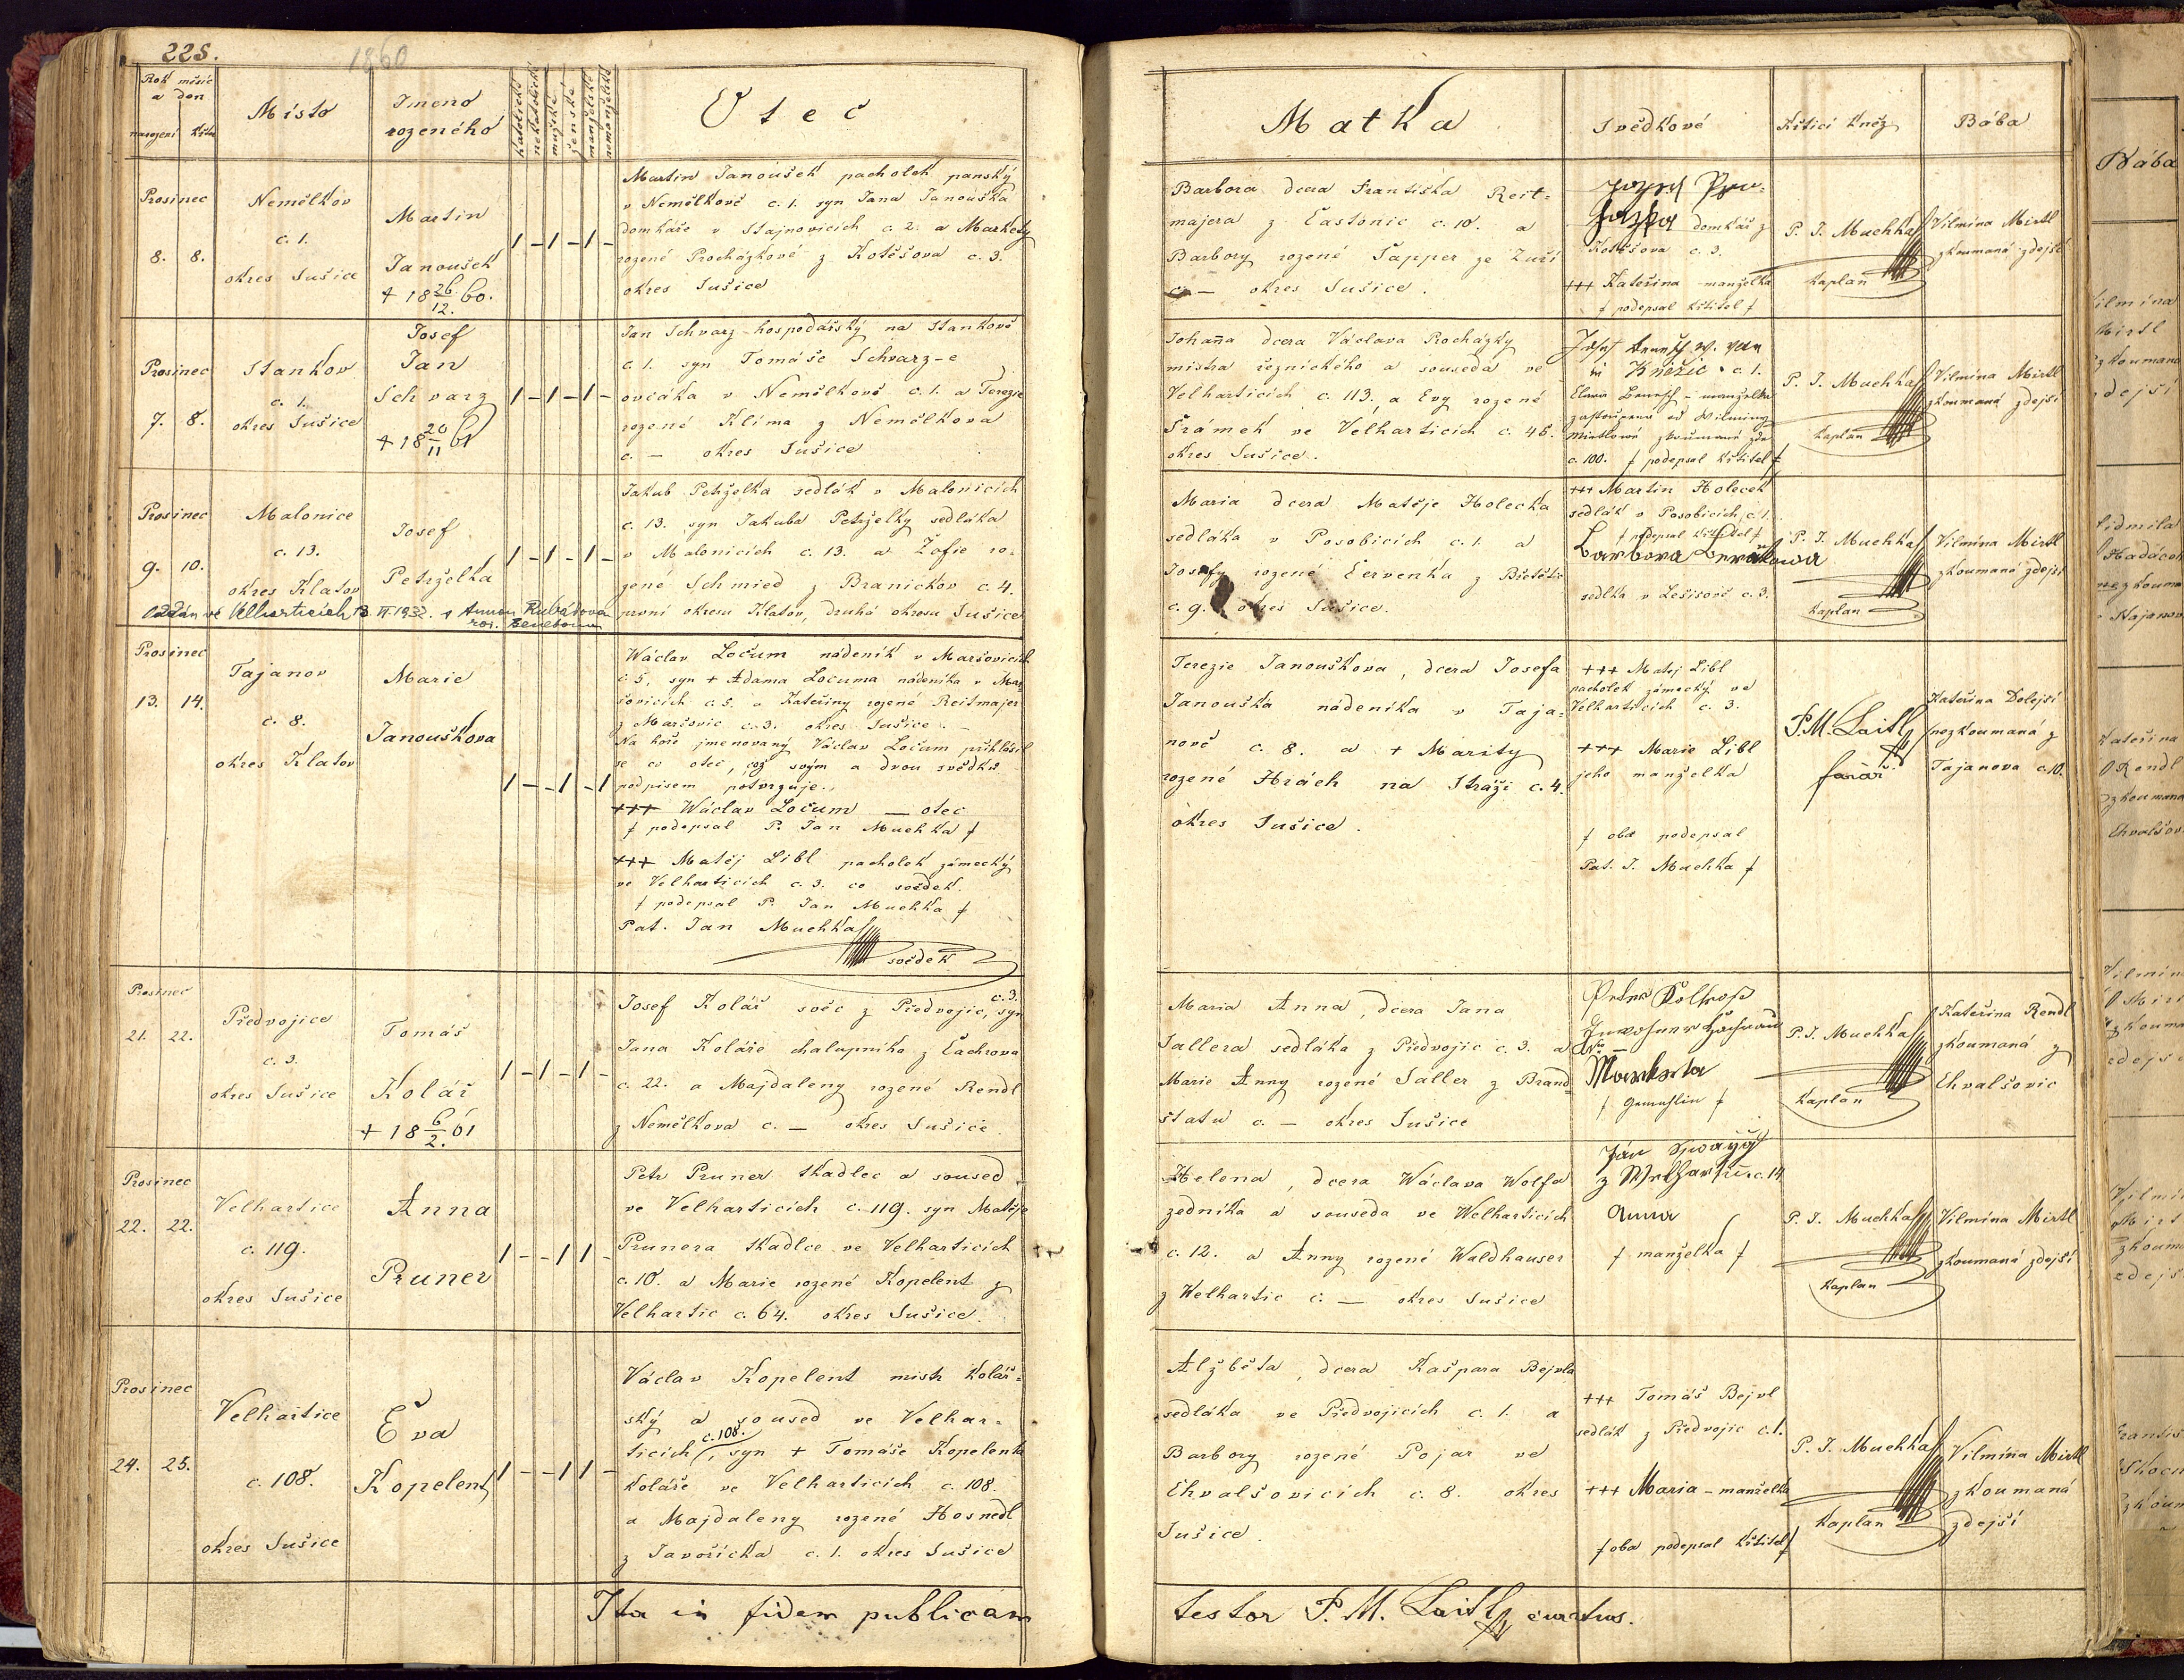 225.
1860
Rok měsíc
a den
narození křtu
Místo
Jmeno
rozeného
katolické
nekatolické
mužské
ženské
manželské
nemanželské
Otec
Prosinec
8. 8.
Nemělkov
c. 1.
okres Sušice
Martin
Janoušek
+ 18 26/12. 60.
1 – 1 – 1 –
Martin Janoušek pacholek panský
v Nemělkově c. 1. syn Jana Janouška
domkáře v Stajnovicích c. 2. a Markety
rozené Procházkové z Kotěšova c. 3.
okres Sušice
Prosinec
7. 8.
Stankov
c. 1.
okres Sušice
Josef
Jan
Schvarz
+ 18 20/11 61
1 – 1 – 1 –
Jan Schvarz hospodářský na Stankově
c. 1. syn Tomáše Schvarz-e
ovčáka v Nemělkově c. 1. a Terezie
rozené Klíma z Nemělkova
c. — okres Sušice
Prosinec
9. 10.
Malonice
c. 13.
okres Klatov
Josef
Petrželka
1 – 1 – 1 –
Jakub Petrželka sedlák v Malonicích
c. 13. syn Jakuba Petrželky sedláka
v Malonicích c. 13. a Žofie ro-
zené Schmied z Branickov c. 4.
první okresu Klatov, druhá okresu Sušice
Oddán ve Velharticích
Prosinec
13. 14.
Tajanov
c. 8.
okres Klatov
Marie
Janouškova
1 – – 1 – 1
WáclavLočum nádeník v Maršovicích
c. 5. syn + Adama Locuma nádeníka v Mar-
šovicích c. 5. a Kateřiny rozené Reitmajer
z Maršovic c. 3. okres Sušice. —
Na hoře jmenovaný Václav Ločum přihlásil
se co otec, což svým a dvou svědků
podpisem potvrzuje.
+++ WáclavLočum — otec
/ podepsal P. Jan Muchka /
+++ Matěj Libl pacholek zámecký
ve Velharticích c. 3. co svědek.
/ podepsal P. Jan Muchka /
Pat. Jan Muchka
svědek
Prosinec
21. 22.
Předvojice
c. 3.
okres Sušice
Tomáš
Kolář
+ 18 6/2. 61
1 – 1 – 1 –
Josef Kolář svěc z Předvojic, c. 3. syn
Jana Koláře chalupníka z Čachrova
c. 22. a Majdaleny rozené Rendl
z Nemělkova c. — okres Sušice
Prosinec
22. 22.
Velhartice
c. 119.
okres Sušice
Anna
Pruner
1 – – 1 1 –
Petr Pruner tkadlec a soused
ve Velharticích c. 119. syn Matěje
Prunera tkadlce ve Velharticích
c. 10. a Marie rozené Kopelent z
Velhartic c. 64. okres Sušice.
Prosinec
24. 25.
Velhartice
c. 108.
okres Sušice
Eva
Kopelent
1 – – 1 1 –
Václav Kopelent mistr kolář-
ský a soused ve Velhar-
ticích c. 108., syn + Tomáše Kopelenta
koláře ve Velharticích c. 108.
a Majdaleny rozené Hosnedl
z Javoříčka c. 1. okres Sušice
Ita in fidem publicam
Matka
Svědkové
Křtící kněz
Bába
Barbora dcera Františka Reit-
majera z Častonic c. 10. a
Barbory rozené Tapper ze Zuří
c. — okres Sušice.
domkář z
Kotěšova c. 3.
+++ Kateřina manželka
/ podepsal křtitel /
P. J. Muchka
Kaplan
Vilmína Mirtl
zkoumaná zdejší
Johanna dcera Václava Procházky
mistra řeznického a souseda ve
Velharticích c. 113. a Evy rozené
Šrámek ve Velharticích c. 48.
okres Sušice.
Kněžic c. 1.
manželka
zastoupena od Vilmíny
Mirtlové zkoušené zde
c. 100. / podepsal křtitel /
P. J. Muchka
Kaplan
Vilmína Mirtl
zkoumaná zdejší
Maria dcera Matěje Holečka
sedláka v Posobicích c. 1. a
Josefy rozené Červenka z
c. 9. okres Sušice.
+++ Martin Holeček
sedlák v Posobicích c. 1.
/ podepsal křtitel /
Barbora
sedlka v c. 3.
P. J. Muchka
Kaplan
Vilmína Mirtl
zkoumaná zdejší
Terezie Janouškova, dcera Josefa
Janouška nádeníka v Taja-
nově c. 8. a + Marity
rozené Hrách na Stráži c. 4.
okres Sušice.
+++ Matěj Libl
pacholek zámecký ve
Velharticích c. 3.
+++ Marie Libl
jeho manželka
/ oba podepsal
Pat. J. Muchka /
P. M. Laitl
farář
Kateřina Dolejší
nezkoumaná z
Tajanova c. 10.
Maria Anna, dcera Jana
Sallera sedláka z Předvojic c. 3. a
Marie Anny rozené Saller z Brand-
štatu c. — okres Sušice
Markéta
/ Gemahlin /
P. J. Muchka
Kaplan
Kateřina Rendl
zkoumaná z
Chvalšovic
Helena, dcera Wáclava Wolfa
zedníka a souseda ve Welharticích
c. 12. a Anny rozené Waldhauser
z Welhartic c. — okres Sušice
Jan
z c. 14
Anna
/ manželka /
P. J. Muchka
Kaplan
Vilmína Mirtl
zkoumaná zdejší
Alžběta, dcera Kašpara Bejvla
sedláka ve Předvojicích c. 1. a
Barbory rozené Pojar ve
Chvalšovicích c. 8. okres
Sušice.
+++ Tomáš Bejvl
sedlák z Předvojic c. 1.
+++ Maria – manželka
/ oba podepsal křtitel /
P. J. Muchka
Kaplan
Vilmína Mirtl
zkoumaná
zdejší
testor P. M. Laitl curatus.
Bába